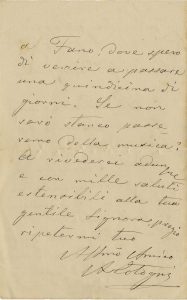 a Fano, dove spero
di venire a passare
una quindicina di
giorni. Se non
sarò stanco passe
remo della musica?
A rivederci adunque
e con mille saluti
estensibili alla tua
gentile signora pregio
ripetermi tuo
Affmo Amico
A Cotogni